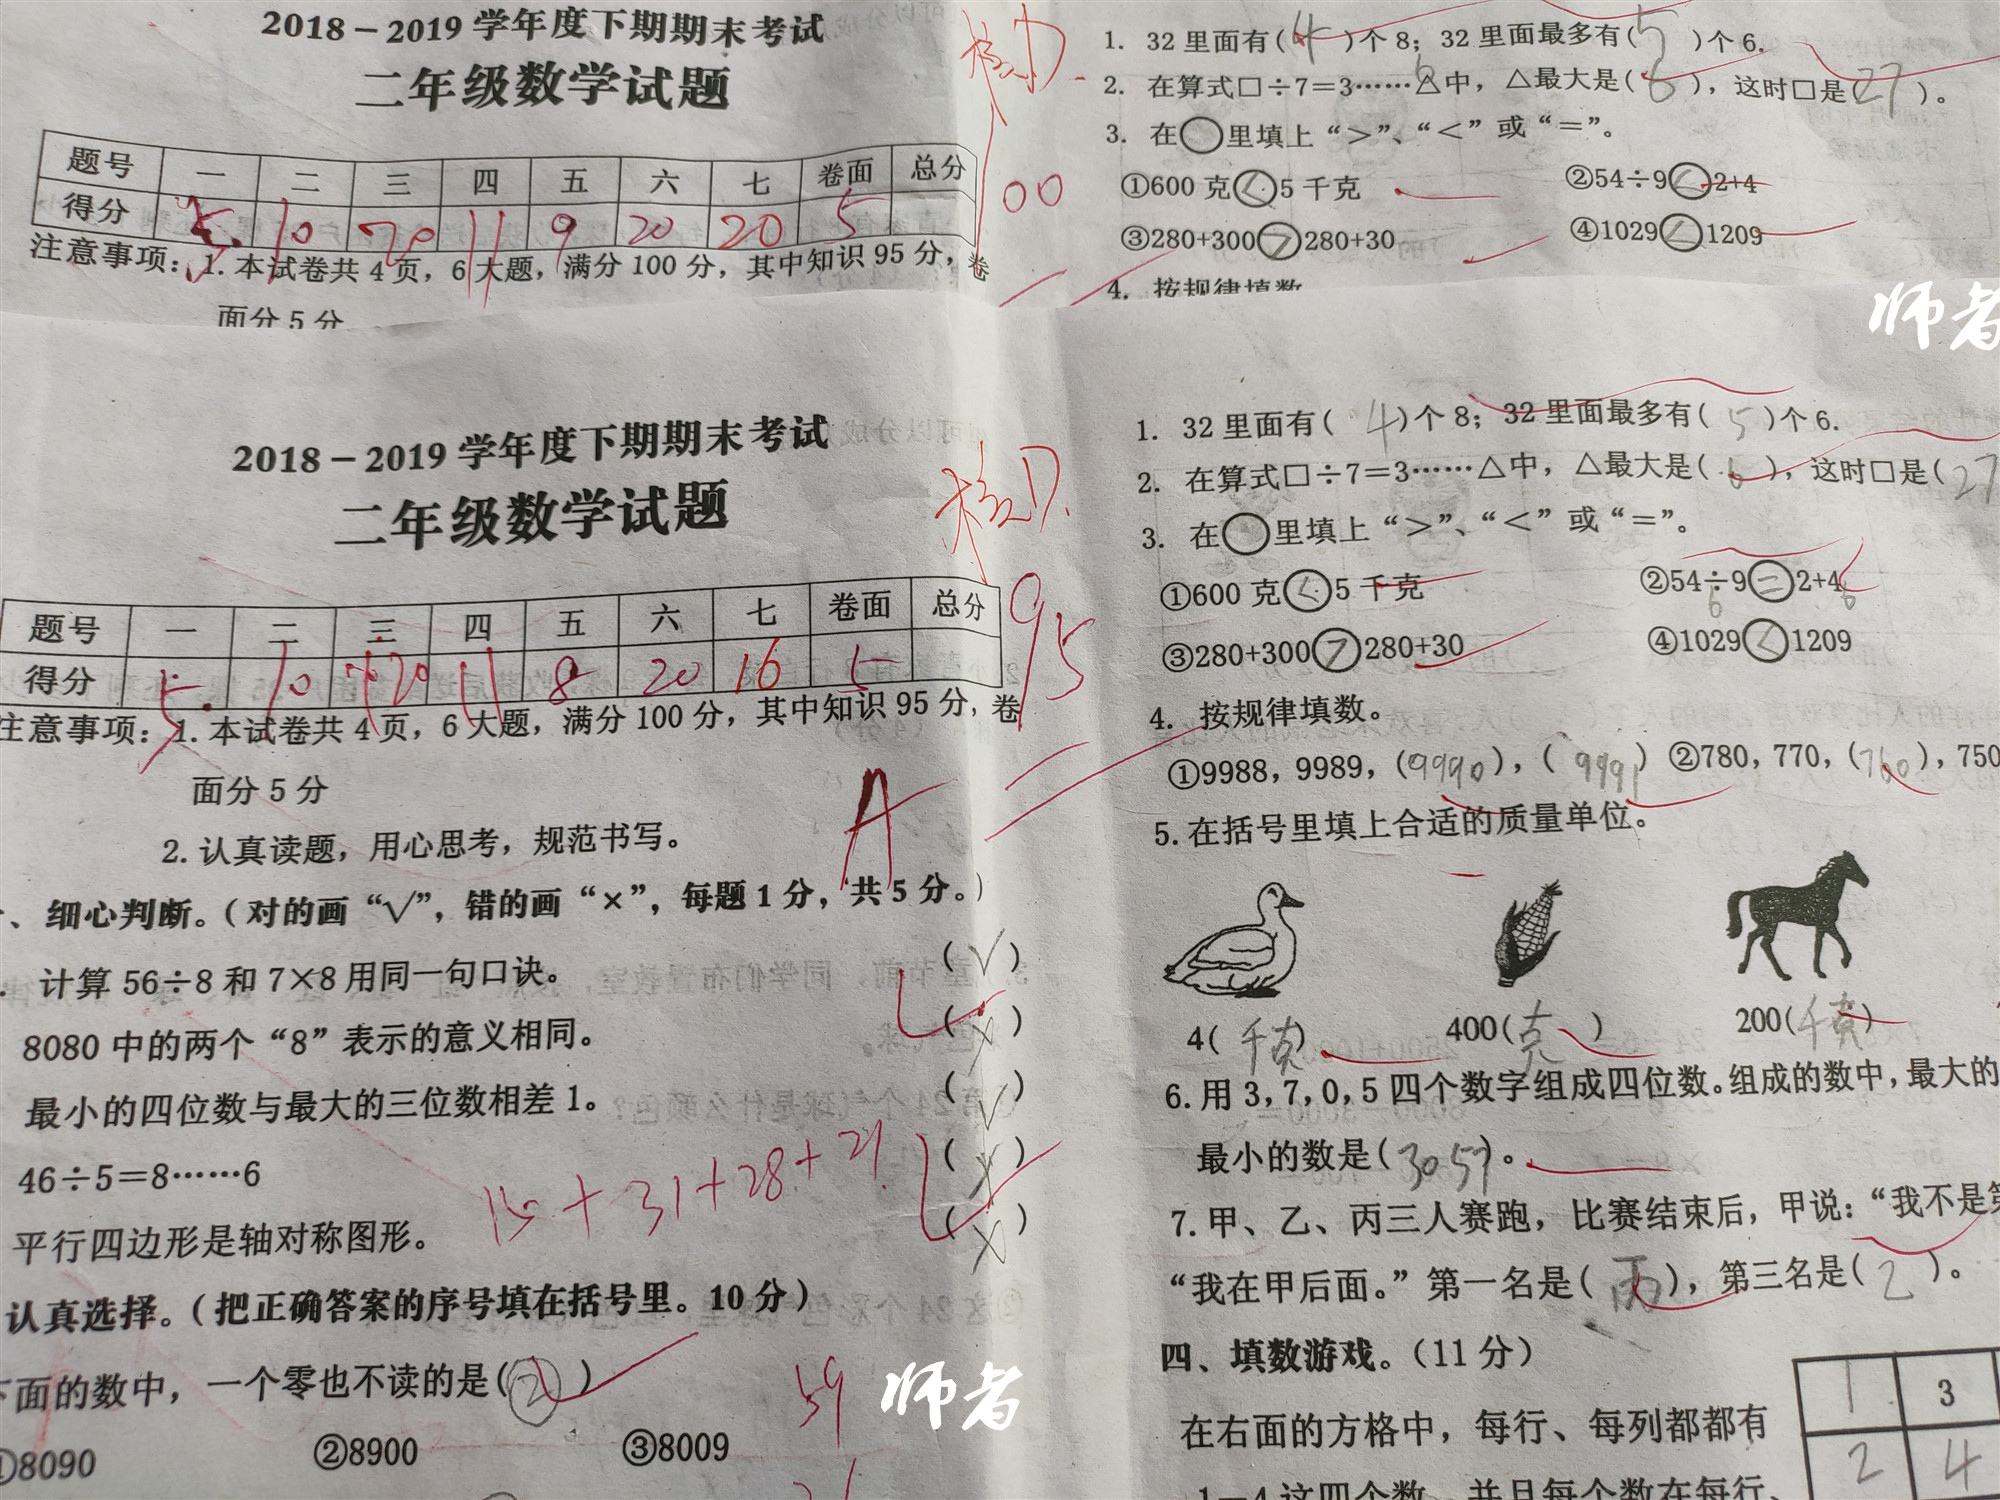 2018－2019 学年度下期期末考试
二年级数学试题
题号 一 二 三 四 五 六 七 卷面 总分
得分 5 10 20 11 9 20 20 5
100
注意事项：1. 本试卷共 4 页，6 大题，满分 100 分，其中知识 95 分，卷
面分 5 分
1. 32 里面有( 4 )个 8；32 里面最多有( 5 )个 6.
2. 在算式□÷7＝3……△中，△最大是( 6 )，这时□是( 27 )。
3. 在○里填上“＞”、“＜”或“＝”。
①600 克＜5 千克 ②54÷9＜2+4
③280+300＞280+30 ④1029＜1209
4. 按规律填数
师者
2018－2019 学年度下期期末考试
二年级数学试题
题号 一 二 三 四 五 六 七 卷面 总分
得分 5 10 20 11 8 20 16 5
95
注意事项：1. 本试卷共 4 页，6 大题，满分 100 分，其中知识 95 分，卷
面分 5 分
A
2. 认真读题，用心思考，规范书写。
、细心判断。（对的画“√”，错的画“×”，每题 1 分，共 5 分。）
计算 56÷8 和 7×8 用同一句口诀。 (√)
8080 中的两个“8”表示的意义相同。 (×)
最小的四位数与最大的三位数相差 1。 (√)
46÷5＝8……6 (×)
15+31+28+21
平行四边形是轴对称图形。 (×)
认真选择。（把正确答案的序号填在括号里。10 分）
下面的数中，一个零也不读的是(②)
59
①8090 ②8900 ③8009
师者
1. 32 里面有( 4 )个 8；32 里面最多有( 5 )个 6.
2. 在算式□÷7＝3……△中，△最大是( 6 )，这时□是( 27
3. 在○里填上“＞”、“＜”或“＝”。
①600 克＜5 千克 ②54÷9＝2+4
6 6
③280+300＞280+30 ④1029＜1209
4. 按规律填数。
①9988，9989，(9990)，( 9991 ) ②780，770，(760)，750
5. 在括号里填上合适的质量单位。
4( 千克 ) 400(克 ) 200(千克)
6. 用 3，7，0，5 四个数字组成四位数。组成的数中，最大的
最小的数是(3057)。
7. 甲、乙、丙三人赛跑，比赛结束后，甲说：“我不是第
“我在甲后面。”第一名是( 丙 )，第三名是( 乙 )。
四、填数游戏。（11 分）
1 3
在右面的方格中，每行、每列都都有
2 4
1—4 这四个数，并且每个数在每行、